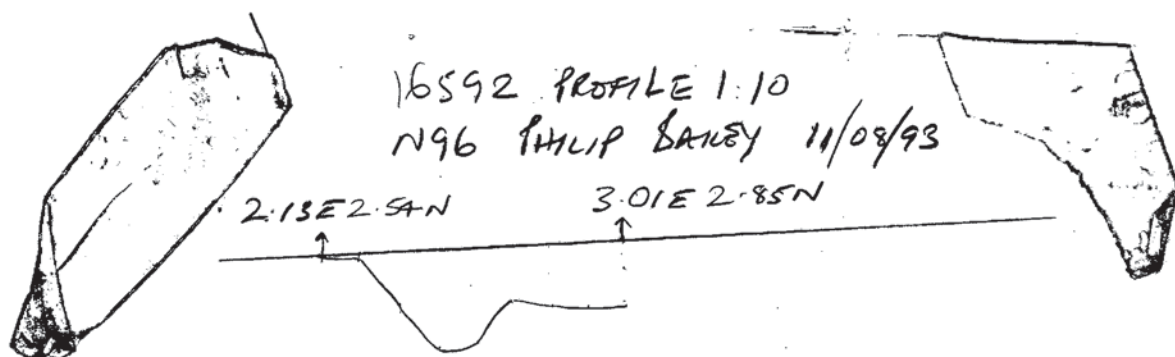 16592 PROFILE 1:10
N96 PHILIP BAILEY 11/08/93
2.13E 2.54N 3.01E 2.85N